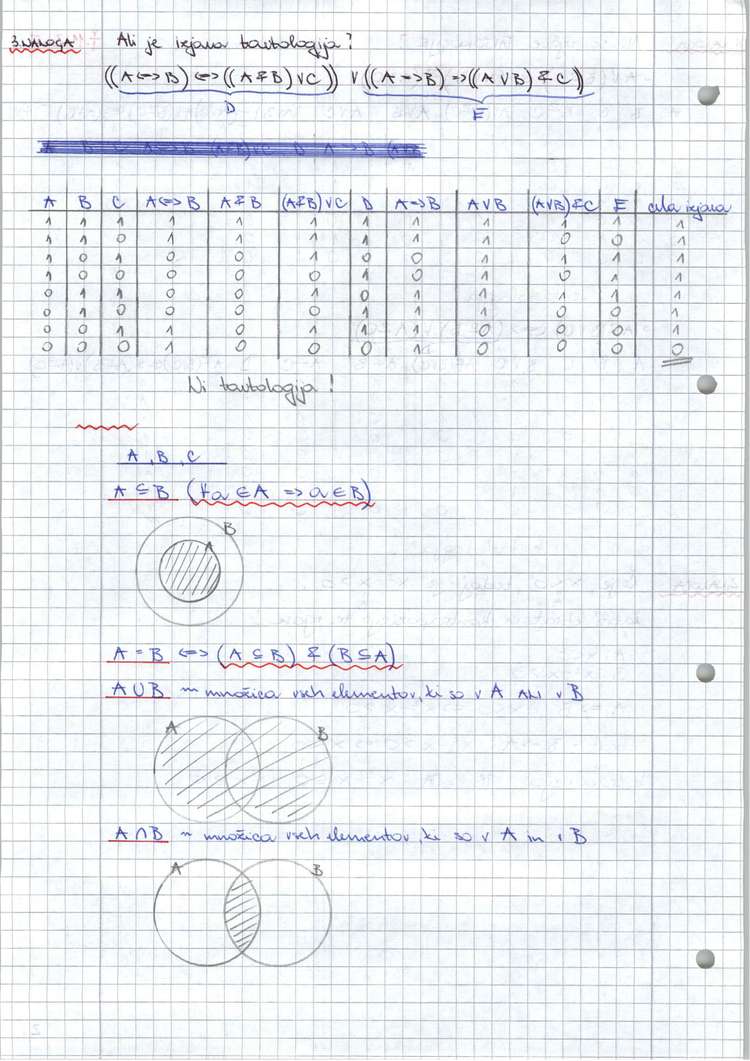 3. NALOGA Ali je izjava tavtologija?
((A <=> B) <=> ((A & B) ∨ C)) ∨ ((A => B) => ((A ∨ B) & C))
D E
A B C A <=> B A & B (A & B) ∨ C D A => B A ∨ B (A ∨ B) & C E cela izjava
1 1 1 1 1 1 1 1 1 1 1 1
1 1 0 1 1 1 1 1 1 0 0 1
1 0 1 0 0 1 0 0 1 1 1 1
1 0 0 0 0 0 1 0 1 0 1 1
0 1 1 0 0 1 0 1 1 1 1 1
0 1 0 0 0 0 1 1 1 0 0 1
0 0 1 1 0 1 1 1 0 0 0 1
0 0 0 1 0 0 0 1 0 0 0 0
Ni tavtologija!
A, B, C
A ⊆ B (∀a ∈ A => a ∈ B)
B
A
A = B <=> (A ⊆ B) & (B ⊆ A)
A ∪ B ~ množica vseh elementov, ki so v A ALI v B
A B
A ∩ B ~ množica vseh elementov, ki so v A in v B
A B